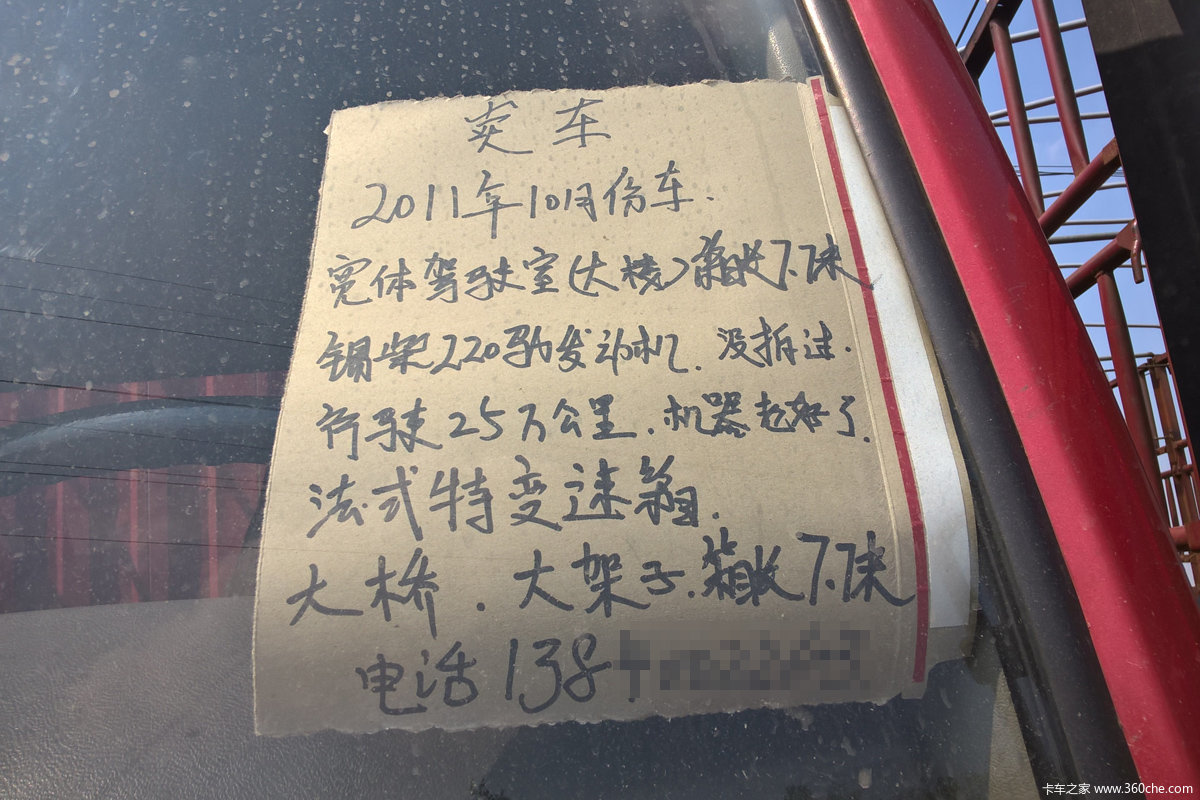 卖车
2011年10月份车.
宽体驾驶室(大楼)箱长7.7米
锡柴220马力发动机. 没拆过.
行驶25万公里.机器起好了.
法式特变速箱.
大桥. 大架子.箱长7.7米
电话138
卡车之家 www.360che.com